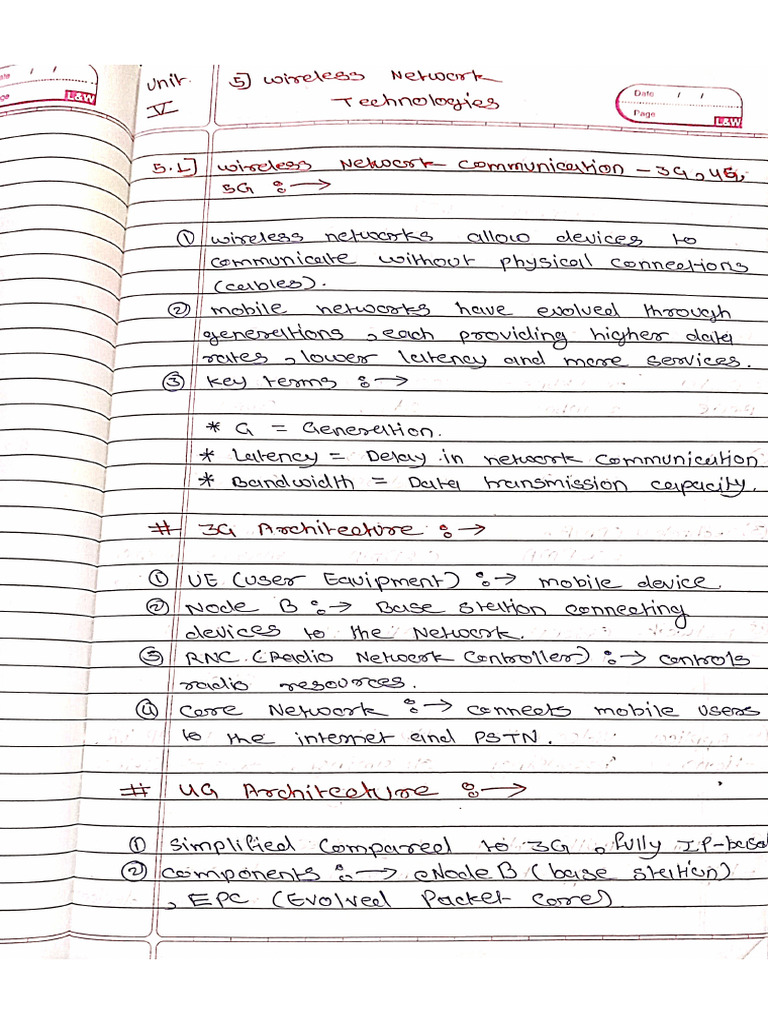 Unit 5] Wireless Network
V Technologies
Date / /
Page
L&W
ate / /
ge
L&W
5.1] Wireless Network Communication - 3G, 4G,
5G :->
① Wireless networks allow devices to
communicate without physical connections
(cables).
② mobile networks have evolved through
generations, each providing higher data
rates, lower latency and more services.
③ Key terms :->
* G = Generation.
* Latency = Delay in network communication
* Bandwidth = Data transmission capacity.
# 3G Architecture :->
① UE (User Equipment) :-> mobile device.
② Node B :-> Base station connecting
devices to the Network.
③ RNC (Radio Network Controller) :-> controls
radio resources.
④ Core Network :-> connects mobile users
to the internet and PSTN.
# 4G Architecture :->
① Simplified compared to 3G, fully IP-based
② Components :-> eNodeB (base station)
, EPC (Evolved Packet Core)